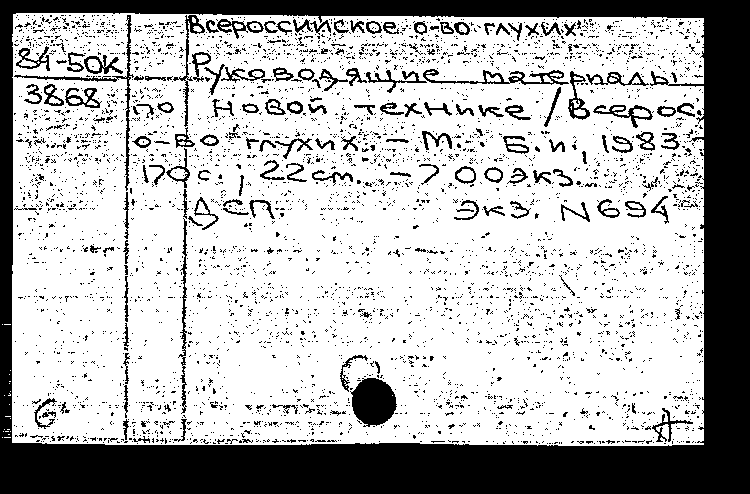 Всероссийское о-во глухих
84-50К
3868
Руководящие материалы
по новой технике / Всерос.
о-во глухих. - М.: Б.и., 1983. -
170 с.; 22 см. - 700 экз.
ДСП. Экз. N 694
6
А